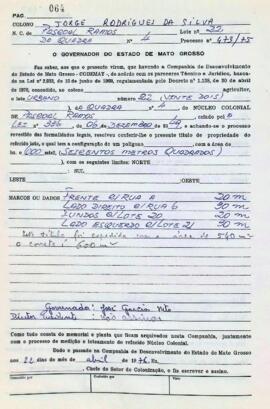 PAG. 064
COLONO JORGE RODRIGUES DA SILVA
N. C. de PASCOAL RAMOS Lote N.º 22
DO QUADRA N.º 4 Processo N.º 473/75
O GOVERNADOR DO ESTADO DE MATO GROSSO
Faz saber, aos que o presente virem, que havendo a Companhia de Desenvolvimento
do Estado de Mato Grosso - CODEMAT -, de acordo com os pareceres Técnico e Jurídico, basea-
dos na Lei nº de junho de regulamentada pelo Decreto de 30 de abril
de 1970, concedido ao colono, agricultor,
o lote URBANO n.º 22 (VINTE DOIS)
da QUADRA n.º 4 do NÚCLEO COLONIAL
DE PASCOAL RAMOS criado pelo
LEI n.º de 06 de DEZEMBRO de 49, e achando-se o processo
revestido das formalidades legais, resolveu conferir-lhe o presente título de propriedade
do referido lote, o qual tem a configuração de um polígono com a área
de 600 mts² (SEISCENTOS METROS QUADRADOS)
), com os seguintes limites: NORTE
; SUL
LESTE ; OESTE
MARCOS OU DADOS FRENTE C/RUA A 20 m
LADO DIREITO C/RUA 6 30 m
FUNDOS C/LOTE 20 20 m
LADO ESQUERDO C/LOTE 21 30 m
Este título foi expedido com a área de 540 m²
o correto é 600 m²
Governador: José Garcia Neto
Diretor Presidente:
Como tudo consta do memorial e planta que ficam arquivados nesta Companhia, juntamente
com o processo de medição e loteamento do referido Núcleo Colonial.
Dado e passado na Companhia de Desenvolvimento do Estado de Mato Grosso
aos 22 dias do mês de abril de 1976. Eu
Chefe do Setor de Colonização, o fiz escrever e assino.
CONFERE